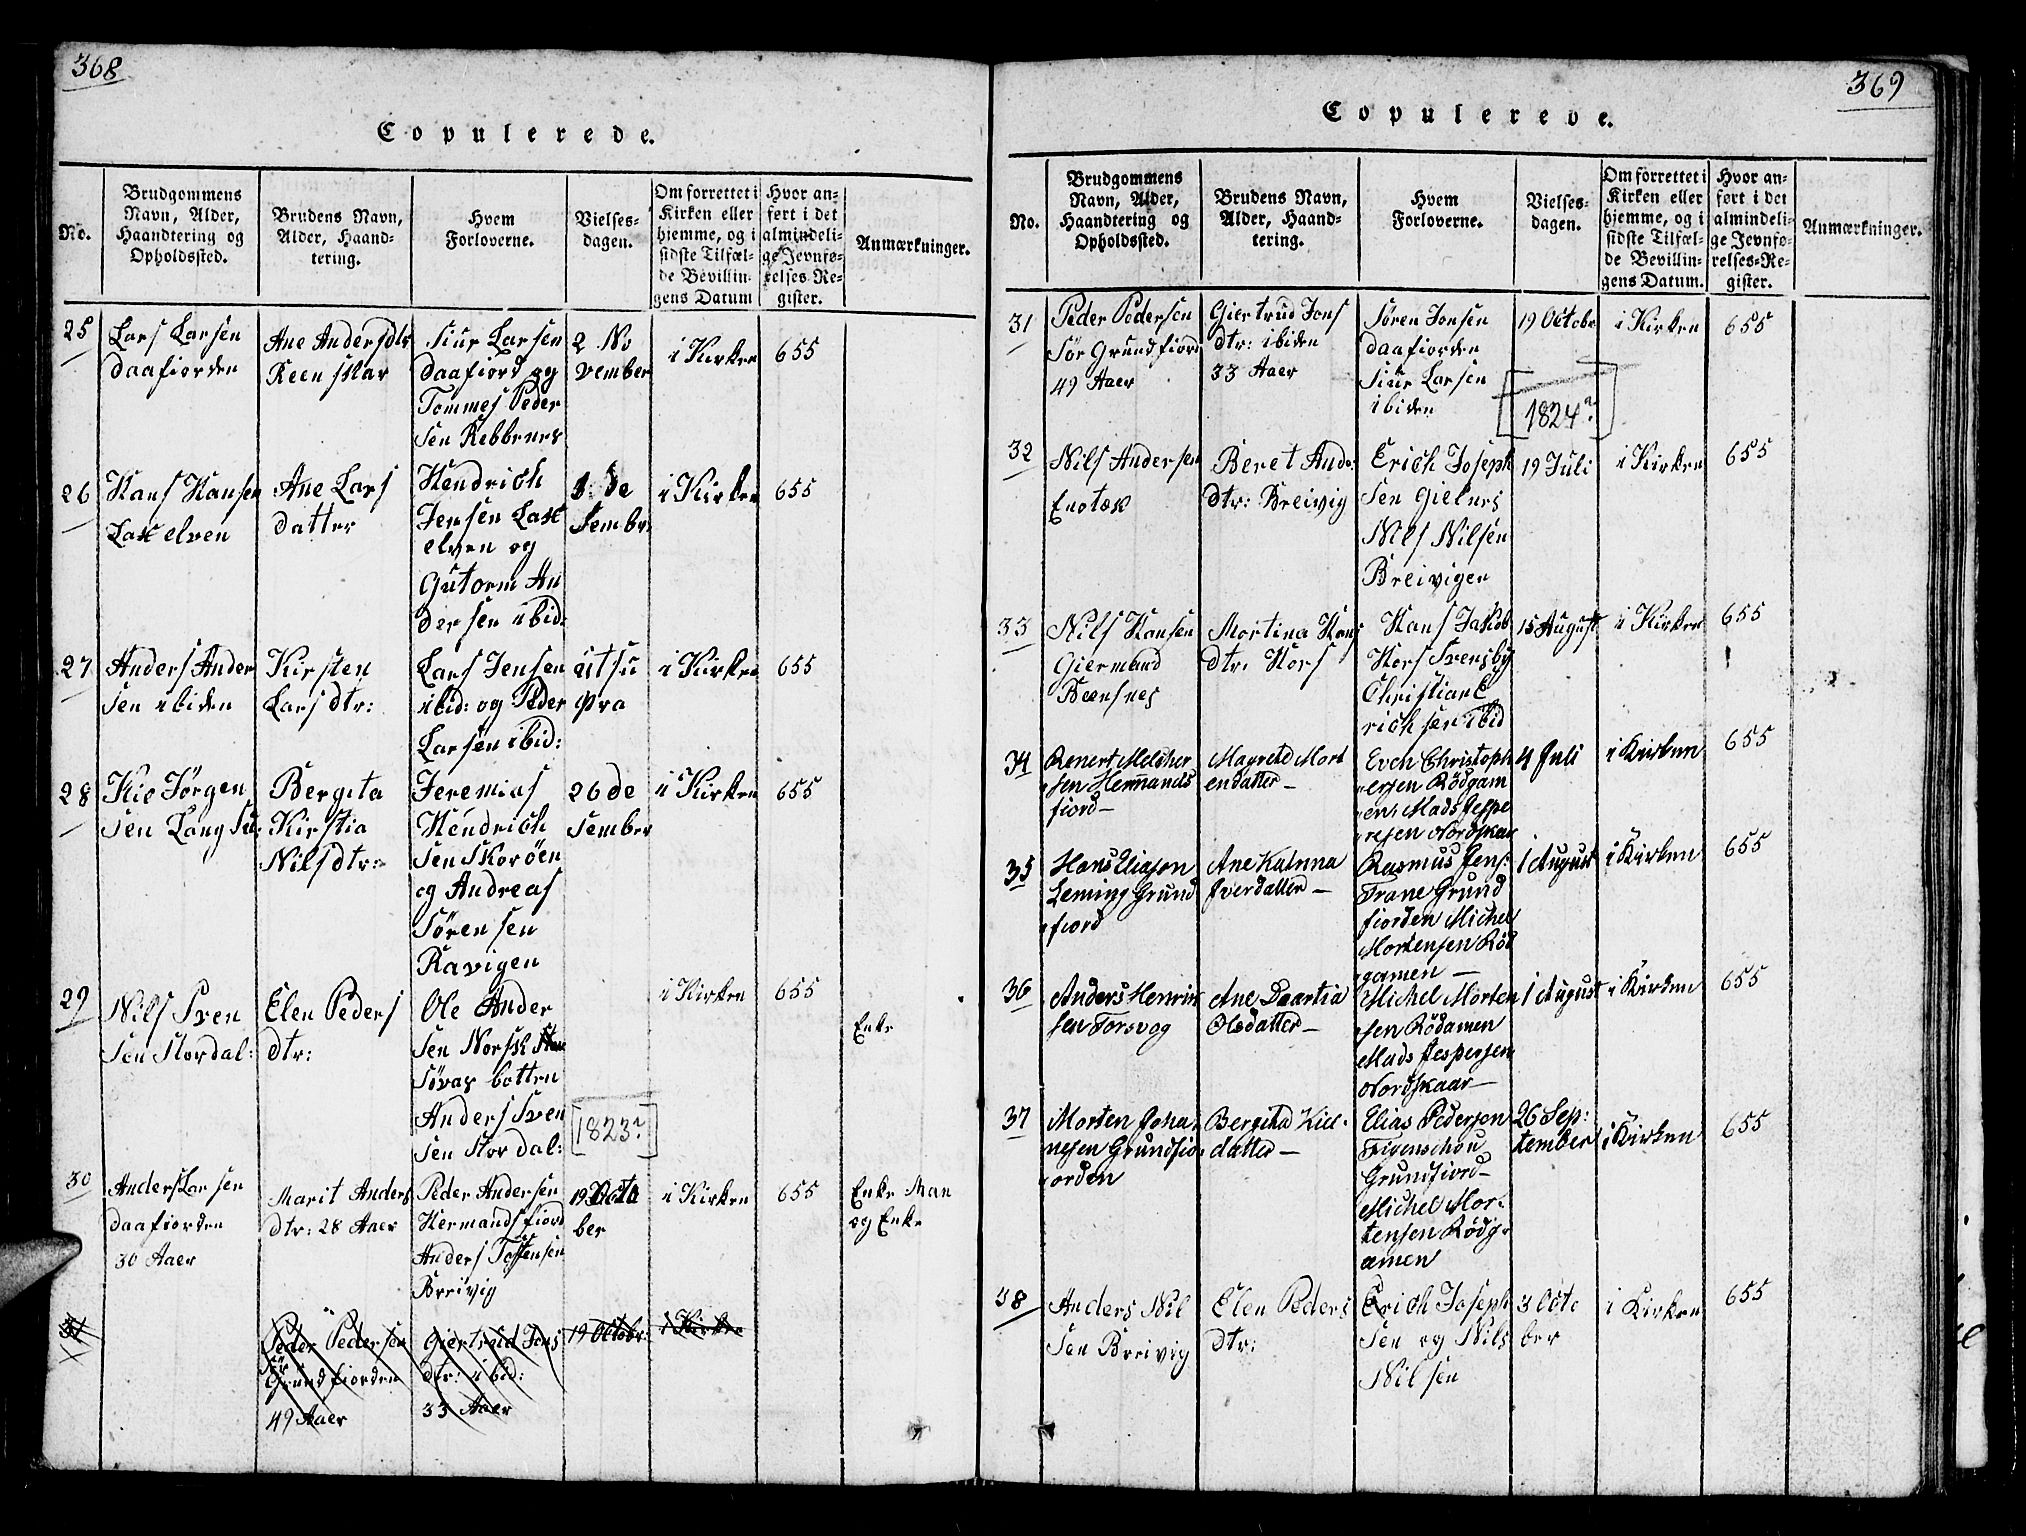 368
Copulerede.
No.
Brudgommens
Navn, Alder,
Haandtering og
Opholdssted.
Brudens Navn,
Alder, Haand-
tering.
Hvem
Forloverne.
Vielses-
dagen.
Om forrettet i
Kirken eller
hjemme, og i
sidste Tilfæl-
de Bevillin-
gens Datum
Hvor an-
ført i det
almindeli-
ge Jevnfø-
relses-Re-
gister.
Anmærkninger.
25
Lars Larsen
Daafiorden
Ane Andersdtr
Reenskar
Siur Larsen
Daafiord og
Tommes Peder
Sen Rebbenes
2 No
vember
i Kirken
655
26
Hans Hansen
Lakselven
Ane Lars
datter
Hendrich
Jensen Laks
elven og
Gutorm An
dersen ibid:
de
Sembr:
i Kirken
655
27
Anders Ander
Sen ibiden
Kirsten
Larsdtr:
Lars Jensen
ibid: og Peder
Larsen ibid:
utsu
pra
i Kirken
655
28
Kiel Jørgen
Sen Langsu:
Bergita
Kirstia
Nilsdtr:
Jeremias
Hendrich
Sen Skorøen
og Andreas
Sørensen
Ravigen
26 de
Sember
i Kirken
655
29
Nils Sven
Sen Stordal:
Elen Peders
dtr:
Ole Ander
Sen Norsk
Søvas botten
Anders Sven
Sen Stordal:
[1823?]
i Kirken
655
Enke
30
Anders Larsen
daafiorden
30 Aaer
Marit Anders
dtr: 28 Aaer
Peder Andersen
Hermandsfiord
Anders Tostensen
Breivig
19 Octo
ber
i Kirken
655
Enke Man
og Enke
31
Peder Pedersen
Sør
Grundfiorden
49 Aaer
Giertrud Jons
dtr: ibid:
33 Aaer
19 Octobr:
i Kirken
369
Copulerede.
No.
Brudgommens
Navn, Alder,
Haandtering og
Opholdssted.
Brudens Navn,
Alder, Haand-
tering.
Hvem
Forloverne.
Vielses-
dagen.
Om forrettet i
Kirken eller
hjemme, og i
sidste Tilfæl-
de Bevillin-
gens Datum.
Hvor an-
ført i det
almindeli-
ge Jevnfø-
relses-Re-
gister.
Anmærkninger.
31
Peder Pedersen
Sør Grundfiord
49 Aaer
Giertrud Jons
dtr: ibiden
33 Aaer
Søren Jonsen
daafiorden
Siur Larsen
ibiden
19 Octobr
[1824?]
i Kirken
655
32
Nils Andersen
Enotæk
Beret Ands
dtr: Breivig
Erich Joseph
Sen Gielnes
Nils Nilsen
Breivigen
19 Juli
i Kirken
655
33
Nils Hansen
Giermand
Beensnes
Mortina Hans
dtr: Hors
Hans Jakob
Hors Svensby
Christian E
richsen ibid
15 August
i Kirken
655
34
Renert Melcher
sen Hermands
fiord—
Magretd Mort
endatter—
Evch Christoph
ersen Rödgam
en, Mads Jespe
rsen Nordskar
4 Juli
i Kirken
655
35
Hans Eliasen
Leming Grund
fiord
Ane Katrina
Iverdatter—
Rasmus Jens:
Trane Grund
fiorden Michel
Mortensen Röd
gamen—
1 August
i Kirken
655
36
Anders Henrik
sen Torsvog
Ane Daartia
Olsdatter—
Michel Morten
sen Rödamen
Mads Jespersen
Nordskaar—
1 August
i Kirken
655
37
Morten Joha-
nesen Grundfio-
orden
Bergita Kiel-
datter—
Elias Pedersen
Figenschou
Grundfiord—
Michel Mor-
tensen Rödg-
amen
26 Sep:
tember
i Kirken
655
38
Anders Nil
Sen Breivig
Elen Peders
dtr:
Erich Joseph
Sen og Nils
Nilsen
3 Octo
ber
i Kirken
655